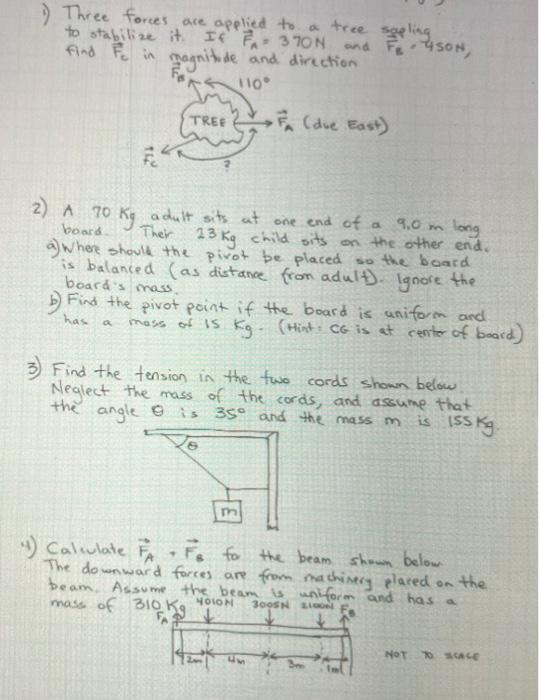 1) Three forces are applied to a tree sapling
to stabilize it. If F⃗A = 370N and F⃗B = 450N,
find F⃗c in magnitude and direction
F⃗B 110°
TREE F⃗A (due East)
F⃗c ?
2) A 70 Kg adult sits at one end of a 9.0 m long
board. Their 23 Kg child sits on the other end.
a) Where should the pivot be placed so the board
is balanced (as distance from adult). Ignore the
board's mass.
b) Find the pivot point if the board is uniform and
has a mass of 15 Kg. (Hint: CG is at center of board)
3) Find the tension in the two cords shown below.
Neglect the mass of the cords, and assume that
the angle θ is 35° and the mass m is 155 Kg.
θ
m
4) Calculate F⃗A + F⃗B for the beam shown below
The downward forces are from machinery placed on the
beam. Assume the beam is uniform and has a
mass of 310 Kg 4010N 3005N 2100N FB
FA
2m 4m 3m 1m NOT TO SCALE